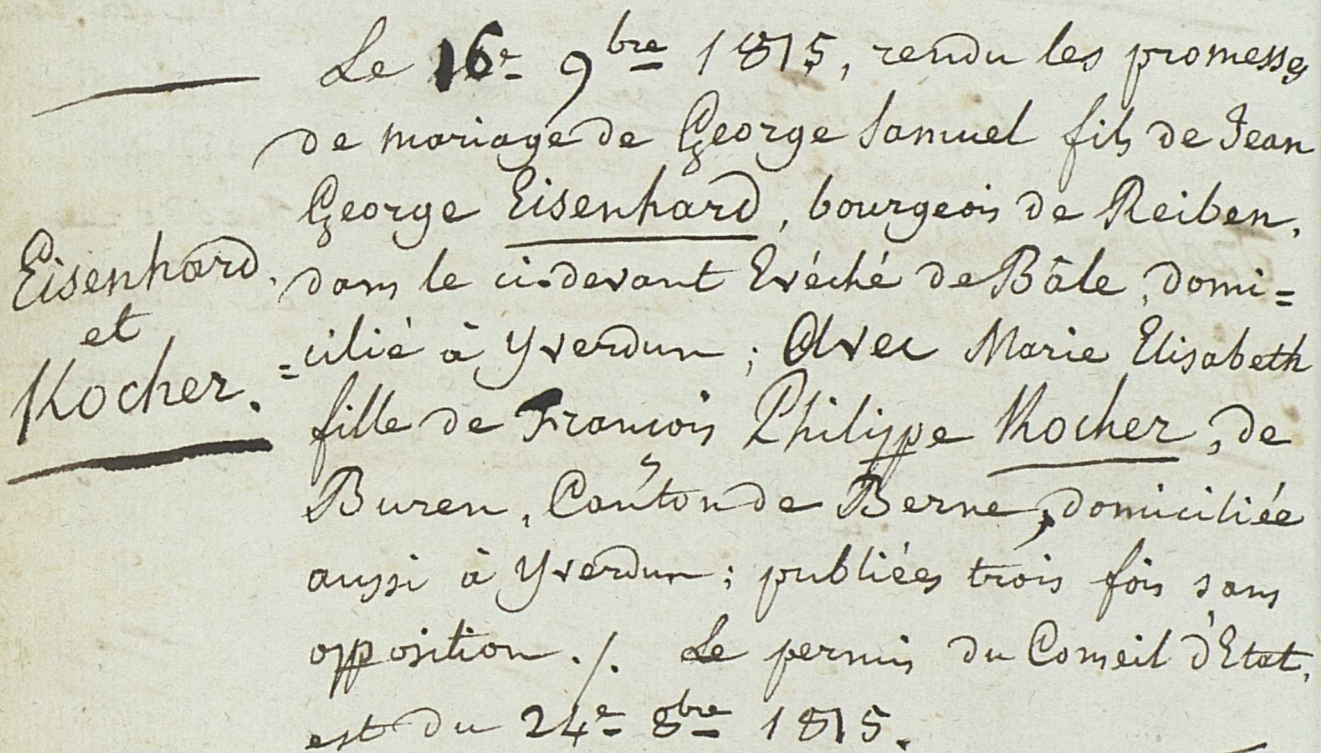 Le 16e 9bre 1815, rendu les promesses
de mariage de George Samuel fils de Jean
George Eisenhard, bourgeois de Reiben,
Eisenhard.
et
Kocher.
dans le ci-devant Evéché de Bâle, domi=
=cilié à Yverdun ; Avec Marie Elisabeth
fille de François Philippe Kocher, de
Buren, Canton de Berne, domiciliée
aussi à Yverdun ; publiées trois fois sans
opposition ./. Le permis du Conseil d'Etat,
est du 24e 8bre 1815.